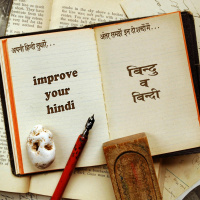 अपनी हिन्दी सुधारें...
improve
your
hindi
अंतर समझें इन शब्दों में...
बिन्दु
व
बिन्दी